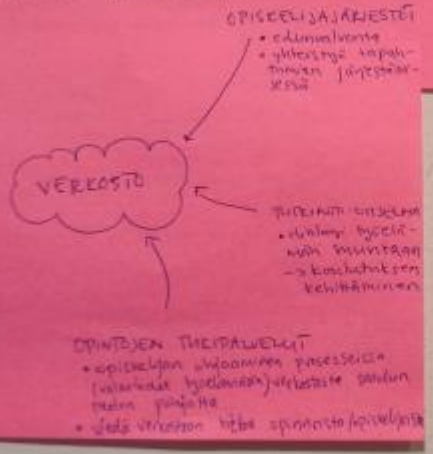 OPISKELIJAJÄRJESTÖT
• edunvalvonta
• yhteistyö tapah-
tumien järjestämi-
sessä
VERKOSTO
TUTKINTO-OHJELMA
työelä-
män suuntaan
→ koulutuksen
kehittäminen
OPINTOJEN TUKIPALVELUT
• opiskelijan ohjaaminen prosesseissa
verkostosta saadun
tiedon pohjalta
• viedä verkostoon tietoa opinnoista/opiskelijoista